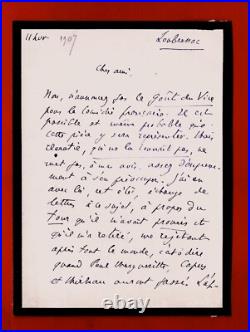 11 nov 1907 Loubressac
Cher ami,
Non, n'annonçez pas le Goût du Vice
pour la Comédie française. Il est
possible et même probable que
cette pièce y sera représentée. Mais
Claretie, qui ne la connaît pas, ne
met pas, à mon avis, assez d'empresse-
ment à s'en préoccuper. J'ai eu
avec lui, cet été, échange de
lettres à ce sujet, à propos du
tour qu'il m'avait promis et
qu'il m'a retiré, me rejetant
après tout le monde, c'est-à-dire
quand Paul Margueritte, Capus
et auront passé.